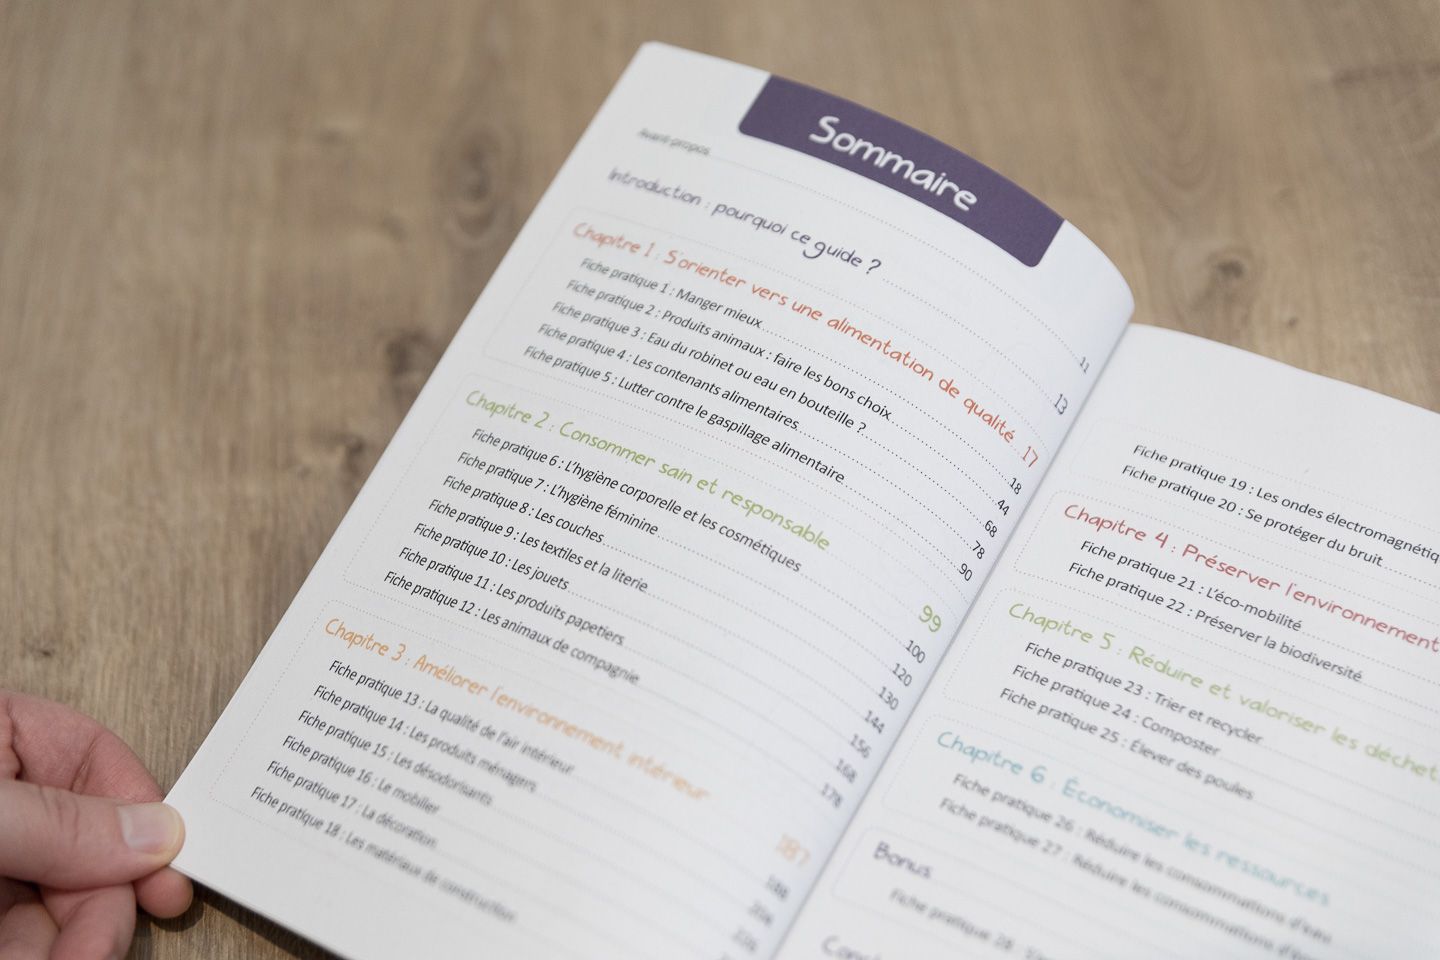 Sommaire
Avant-propos 11
Introduction : pourquoi ce guide ? 13
Chapitre 1 : S'orienter vers une alimentation de qualité 17
Fiche pratique 1 : Manger mieux 18
Fiche pratique 2 : Produits animaux : faire les bons choix 44
Fiche pratique 3 : Eau du robinet ou eau en bouteille ? 68
Fiche pratique 4 : Les contenants alimentaires 78
Fiche pratique 5 : Lutter contre le gaspillage alimentaire 90
Chapitre 2 : Consommer sain et responsable 99
Fiche pratique 6 : L'hygiène corporelle et les cosmétiques 100
Fiche pratique 7 : L'hygiène féminine 120
Fiche pratique 8 : Les couches 130
Fiche pratique 9 : Les textiles et la literie 144
Fiche pratique 10 : Les jouets 156
Fiche pratique 11 : Les produits papetiers 168
Fiche pratique 12 : Les animaux de compagnie 178
Chapitre 3 : Améliorer l'environnement intérieur 187
Fiche pratique 13 : La qualité de l'air intérieur 188
Fiche pratique 14 : Les produits ménagers
Fiche pratique 15 : Les désodorisants
Fiche pratique 16 : Le mobilier
Fiche pratique 17 : La décoration
Fiche pratique 18 : Les matériaux de construction
Fiche pratique 19 : Les ondes électromagnétiq
Fiche pratique 20 : Se protéger du bruit
Chapitre 4 : Préserver l'environnement
Fiche pratique 21 : L'éco-mobilité
Fiche pratique 22 : Préserver la biodiversité
Chapitre 5 : Réduire et valoriser les déchet
Fiche pratique 23 : Trier et recycler
Fiche pratique 24 : Composter
Fiche pratique 25 : Élever des poules
Chapitre 6 : Économiser les ressources
Fiche pratique 26 : Réduire les consommations d'eau
Fiche pratique 27 : Réduire les consommations
Bonus
Fiche pratique 28 :